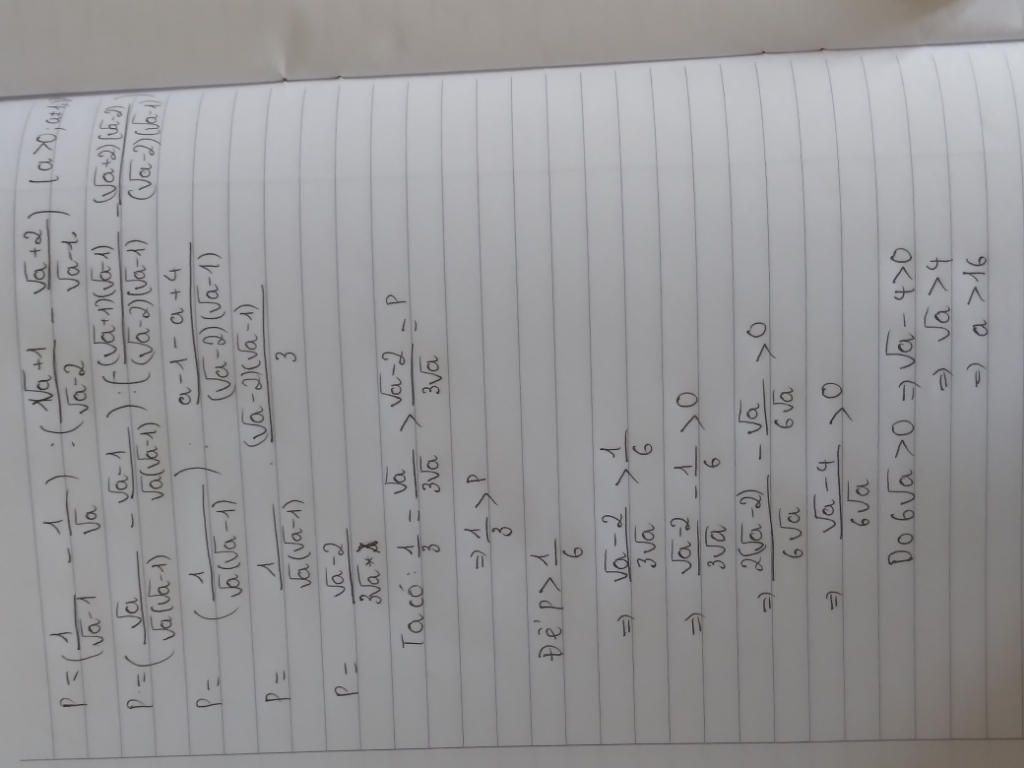 P = (1/(√a-1) - 1/√a) : ((√a+1)/(√a-2) - (√a+2)/(√a-1)) (a>0, a≠
P = (√a/(√a(√a-1)) - (√a-1)/(√a(√a-1))) : ((√a+1)(√a-1)/((√a-2)(√a-1)) - (√a+2)(√a-2)/((√a-2)(√a-1)
P = (1/(√a(√a-1))) : (a-1-a+4)/((√a-2)(√a-1))
P = 1/(√a(√a-1)) . (√a-2)(√a-1)/3
P = (√a-2)/(3√a)
Ta có: 1/3 = √a/(3√a) > (√a-2)/(3√a) = P
⇒ 1/3 > P
Để P > 1/6
⇒ (√a-2)/(3√a) > 1/6
⇒ (√a-2)/(3√a) - 1/6 > 0
⇒ 2(√a-2)/(6√a) - √a/(6√a) > 0
⇒ (√a-4)/(6√a) > 0
Do 6√a > 0 ⇒ √a - 4 > 0
⇒ √a > 4
⇒ a > 16